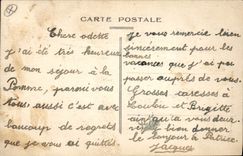 CARTE POSTALE
Chere odette
j'ai été très heureux
de mon séjour à la
Pomme, parmi vous
Nous aussi c'est avec
beaucoup de regrets
que je vous ai quittés
je vous remercie bien
sincèrement pour les
bonnes
vacances que j'ai pu
passer auprès de vous.
Grosses caresses à
Loulou et Brigitte
ainsi qu'à vous deux.
bien donner
le bonjour à Patrice
Jacques